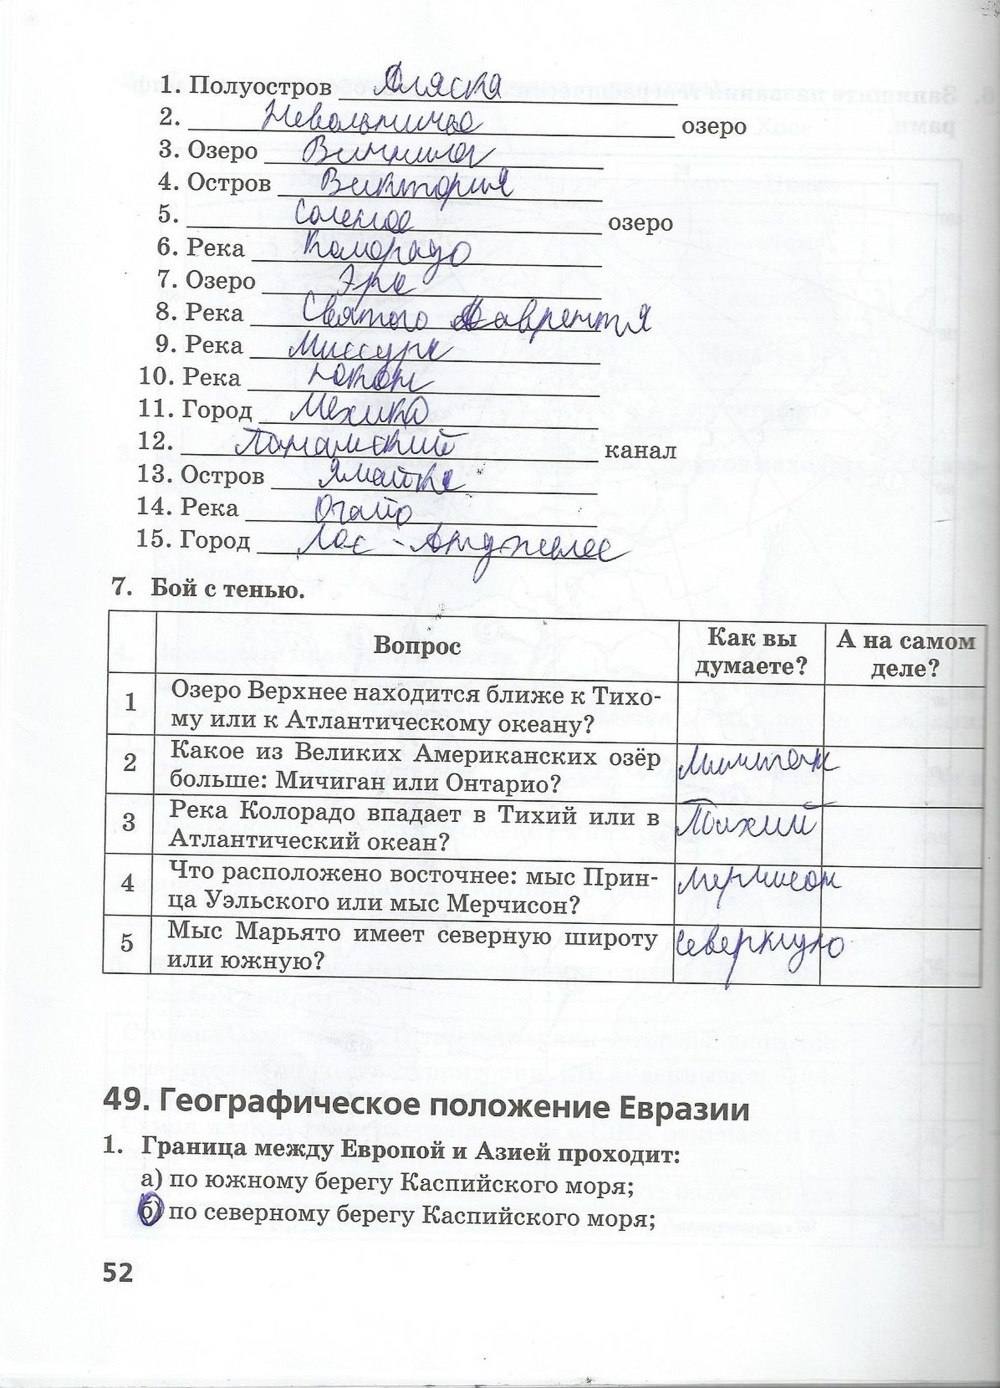 1. Полуостров Аляска
2. Невольничье озеро
3. Озеро Виннипег
4. Остров Виктория
5. Соленое озеро
6. Река Колорадо
7. Озеро Эри
8. Река Святого Лаврентия
9. Река Миссури
10. Река Юкон
11. Город Мехико
12. Панамский канал
13. Остров Ямайка
14. Река Огайо
15. Город Лос-Анджелес
7. Бой с тенью.
Вопрос
Как вы думаете?
А на самом деле?
1 Озеро Верхнее находится ближе к Тихо-
му или к Атлантическому океану?
2 Какое из Великих Американских озёр
больше: Мичиган или Онтарио?
3 Река Колорадо впадает в Тихий или в Тихий
Атлантический океан?
4 Что расположено восточнее: мыс Прин- мерчисон
ца Уэльского или мыс Мерчисон?
5 Мыс Марьято имеет северную широту северную
или южную?
49. Географическое положение Евразии
1. Граница между Европой и Азией проходит:
а) по южному берегу Каспийского моря;
б) по северному берегу Каспийского моря;
52